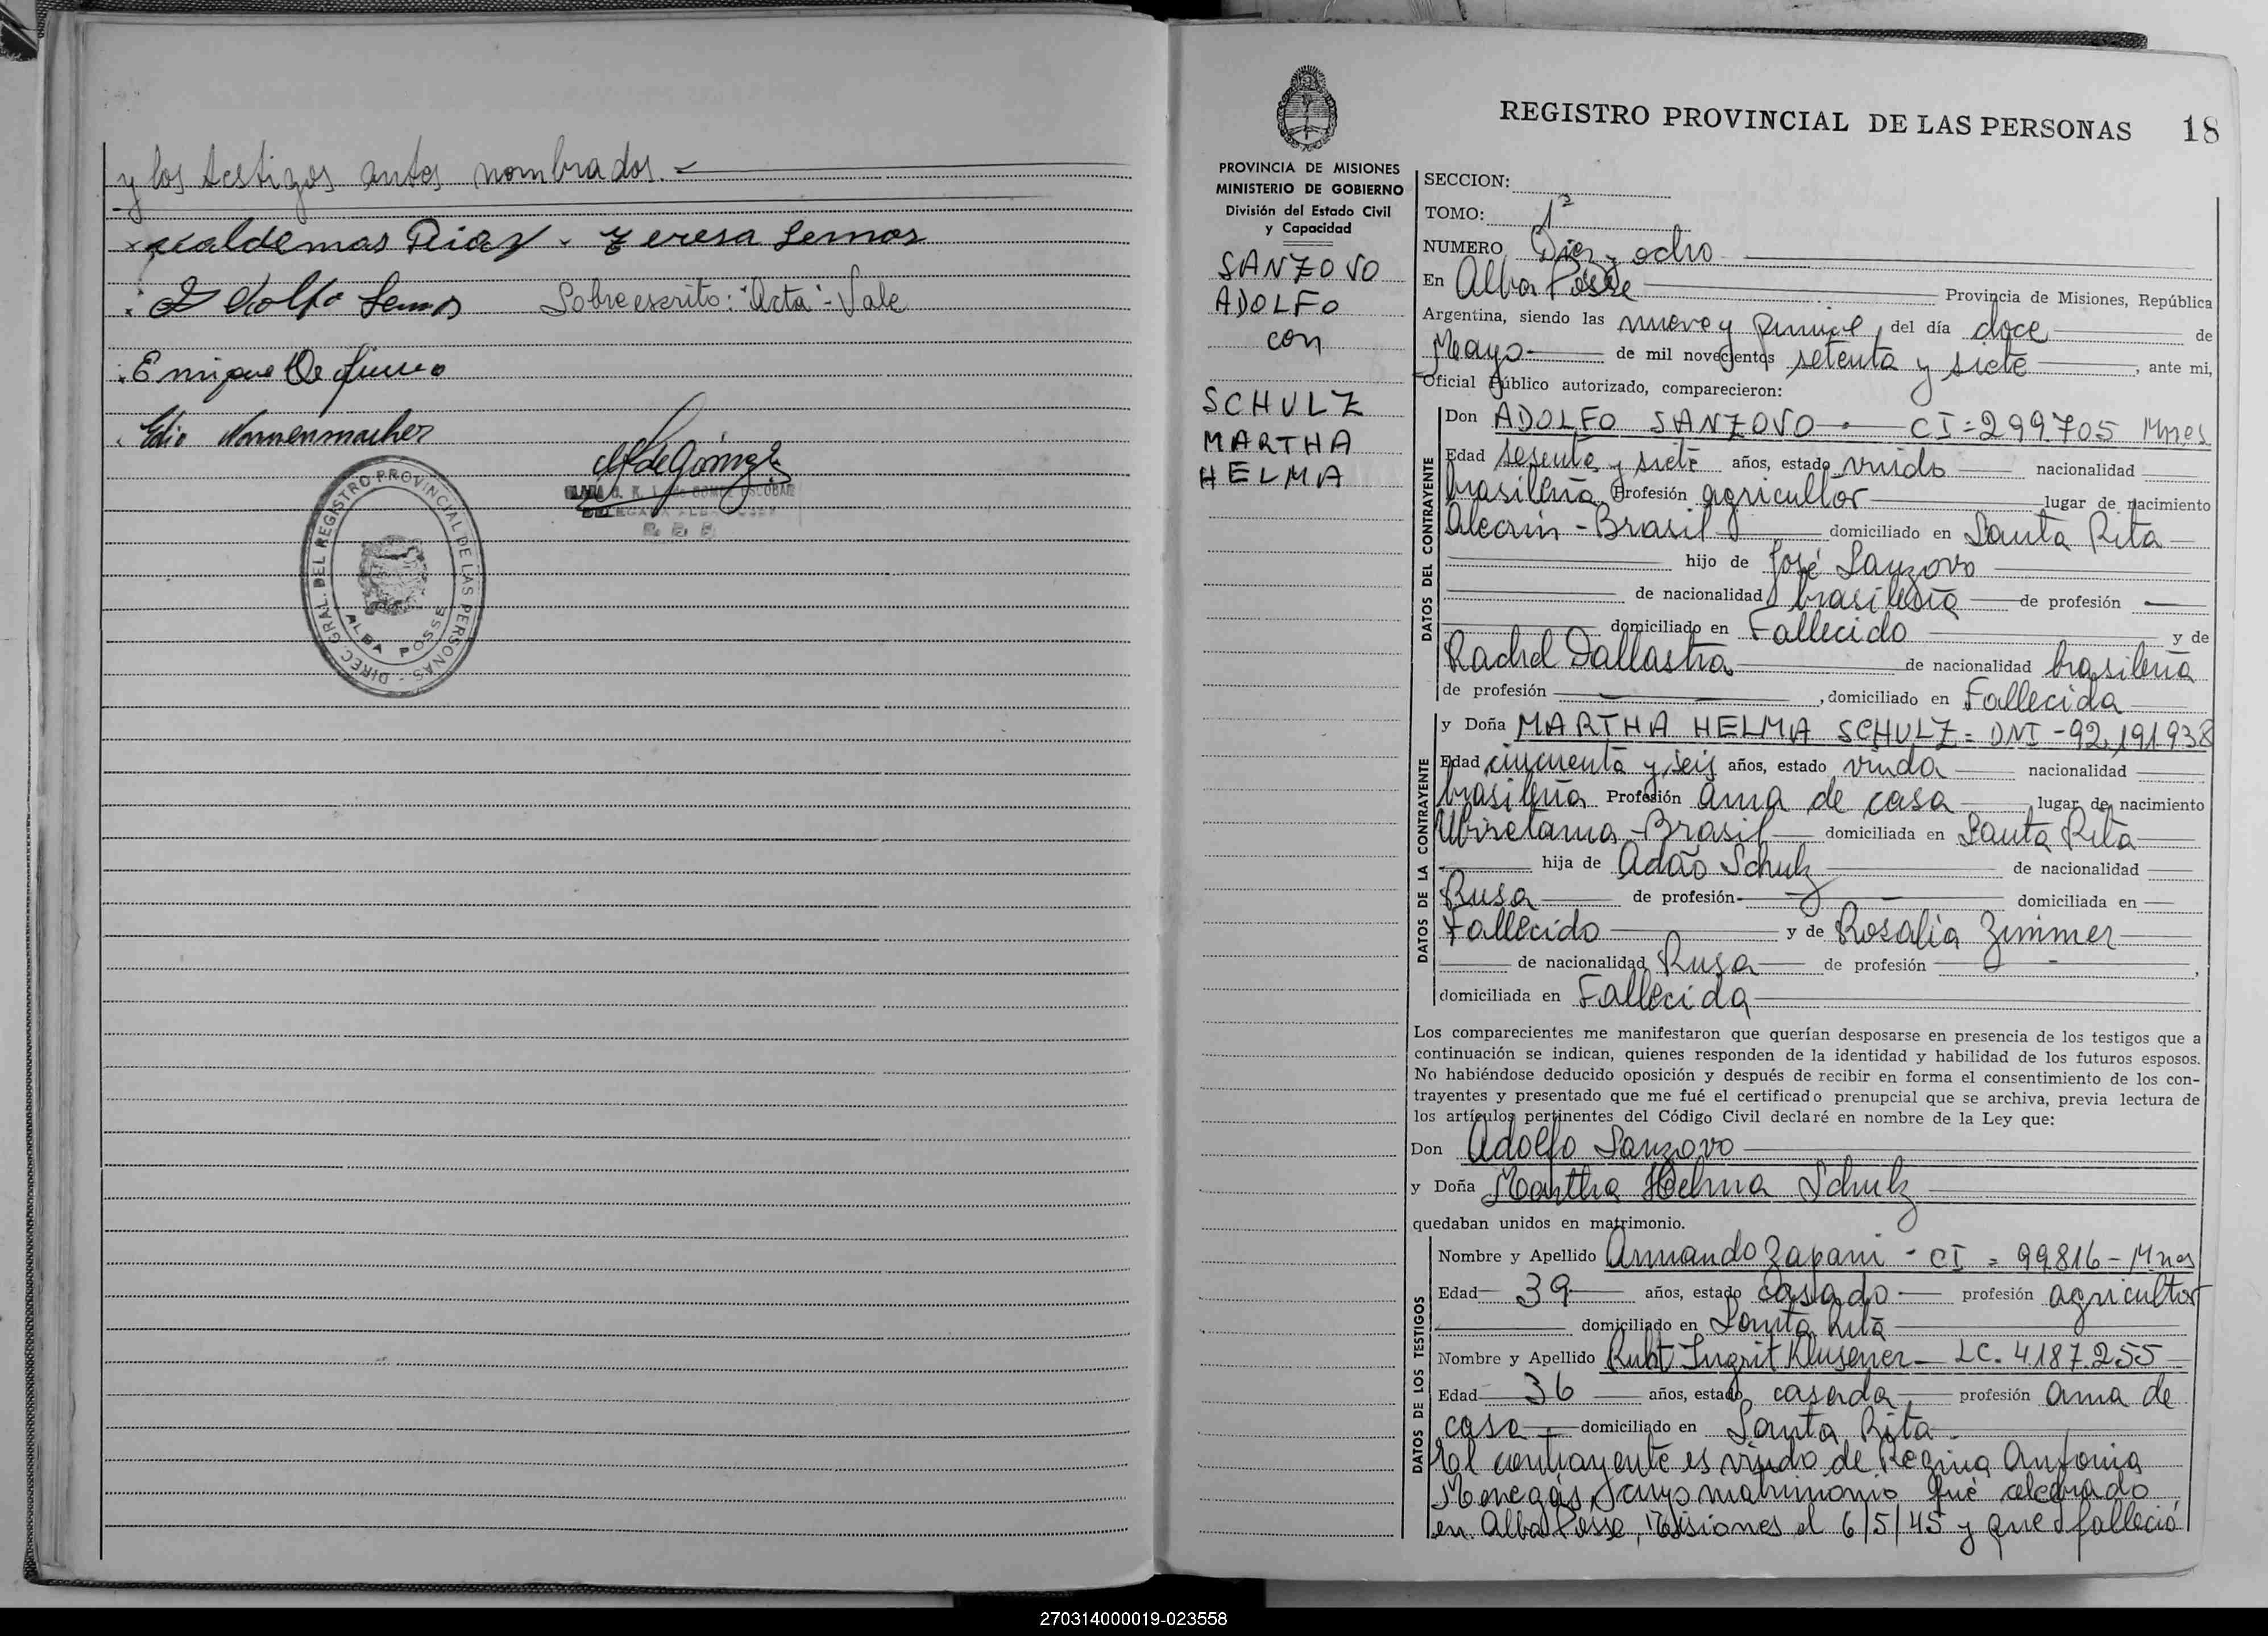 y los testigos antes nombrados.
Waldemas Diaz. Teresa Lemos
Adolfo Lemos Sobre escrito: "Acta" - Vale
Enrique De
Edio Nonnenmacher
DIREC. GRAL. DEL REGISTRO PROVINCIAL DE LAS PERSONAS -
ALBA POSSE
REGISTRO PROVINCIAL DE LAS PERSONAS 18
PROVINCIA DE MISIONES
MINISTERIO DE GOBIERNO
División del Estado Civil
y Capacidad
SANZOVO
ADOLFO
con
SCHULZ
MARTHA
HELMA
SECCION:
TOMO: 1º
NUMERO Diez y ocho
En Alba Posse Provincia de Misiones, República
Argentina, siendo las nueve y quince, del día doce de
Mayo de mil novecientos setenta y siete, ante mi,
Oficial Público autorizado, comparecieron:
DATOS DEL CONTRAYENTE
Don ADOLFO SANZOVO - CI = 299.705 Mnes
Edad sesenta y siete años, estado viudo nacionalidad
brasileña Profesión agricultor lugar de nacimiento
Alecrin - Brasil domiciliado en Santa Rita
hijo de José Sanzovo
de nacionalidad brasileña de profesión
domiciliado en Fallecido y de
Rachel Dallastra de nacionalidad brasileña
de profesión , domiciliado en Fallecida
DATOS DE LA CONTRAYENTE
y Doña MARTHA HELMA SCHULZ = DNI - 92.191.938
Edad cincuenta y seis años, estado viuda nacionalidad
brasileña Profesión ama de casa lugar de nacimiento
Ubiretama - Brasil domiciliada en Santa Rita
hija de Adão Schulz de nacionalidad
Rusa de profesión domiciliada en
Fallecido y de Rosalia Zimmer
de nacionalidad Rusa de profesión ,
domiciliada en Fallecida
Los comparecientes me manifestaron que querían desposarse en presencia de los testigos que a
continuación se indican, quienes responden de la identidad y habilidad de los futuros esposos.
No habiéndose deducido oposición y después de recibir en forma el consentimiento de los con-
trayentes y presentado que me fué el certificado prenupcial que se archiva, previa lectura de
los artículos pertinentes del Código Civil declaré en nombre de la Ley que:
Don Adolfo Sanzovo
y Doña Martha Helma Schulz
quedaban unidos en matrimonio.
DATOS DE LOS TESTIGOS
Nombre y Apellido Armando Zapani - CI = 99.816 - Mnes
Edad 39 años, estado casado profesión agricultor
domiciliado en Santa Rita
Nombre y Apellido Ruht Ingrit Klusener - LC. 4.187.255
Edad 36 años, estado casada profesión ama de
casa domiciliado en Santa Rita
El contrayente es viudo de Regina Antonia
Menegás, cuyo matrimonio fué celebrado
en Alba Posse, Misiones el 6/5/45 y que falleció
270314000019-023558